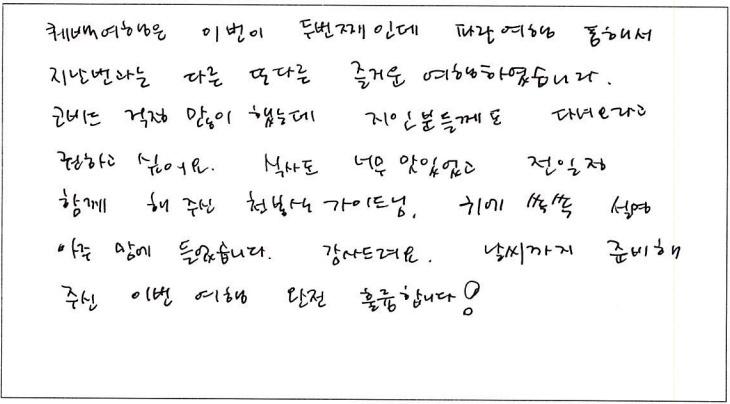 퀘백여행은 이번이 두번째인데 파란여행 통해서
지난번과는 다른 또다른 즐거운 여행하였습니다.
코비드 걱정 많이 했는데 지인분들께도 다녀오라고
권하고 싶어요. 식사도 너무 맛있었고 전일정
함께 해 주신 가이드님, 귀에 쏙쏙 설명
아주 맘에 들었습니다. 감사드려요. 날씨까지 준비해
주신 이번 여행 완전 훌륭합니다!